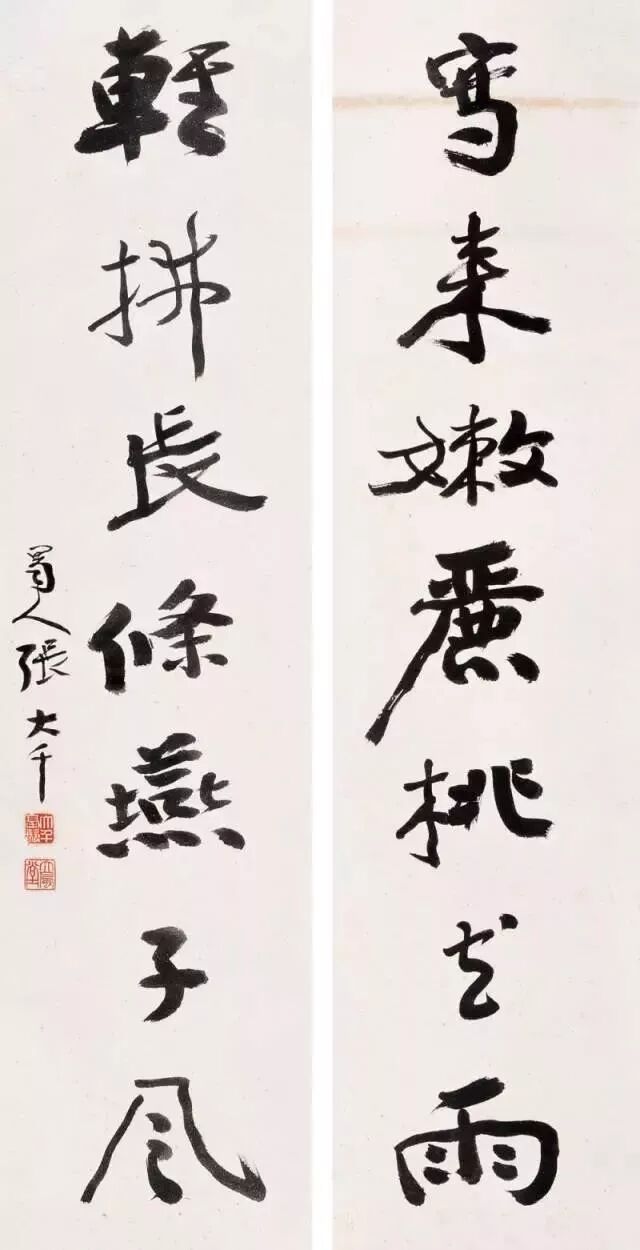 寫來嫩麗桃花雨
輕拂長條燕子風
蜀人張大千
大風堂